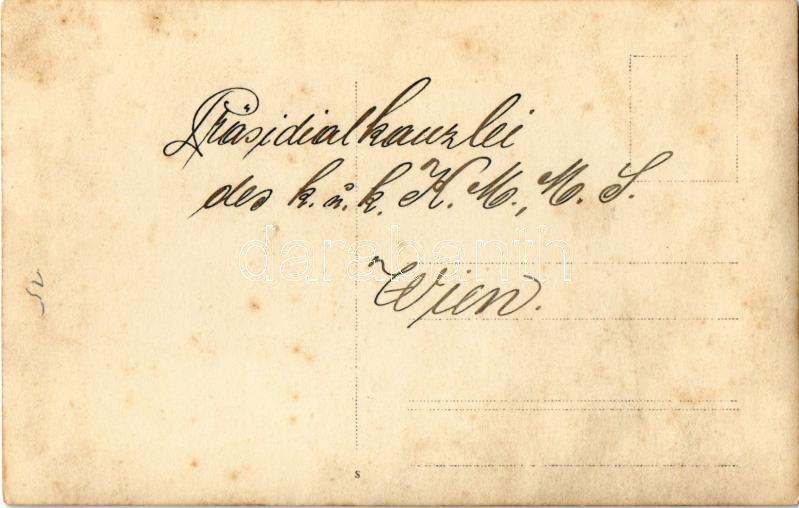 Präsidialkanzlei
des k. u. k. K. M., M. S.
Wien.
darabanth
S